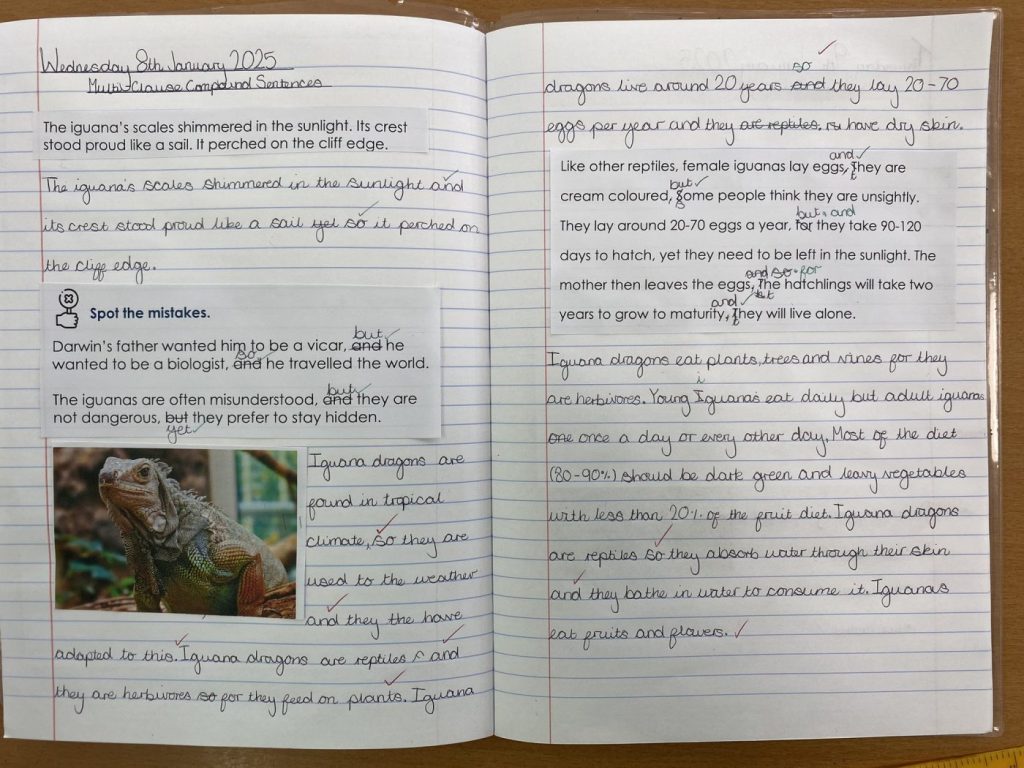 Wednesday 8th January 2025
Multi-Clause Compound Sentences
The iguana's scales shimmered in the sunlight. Its crest
stood proud like a sail. It perched on the cliff edge.
The iguana's scales shimmered in the sunlight and
its crest stood proud like a sail yet so it perched on
the cliff edge.
Spot the mistakes.
but
Darwin's father wanted him to be a vicar, and he
so
wanted to be a biologist, and he travelled the world.
but
The iguanas are often misunderstood, and they are
not dangerous, but they prefer to stay hidden.
yet
Iguana dragons are
found in tropical
climate, so they are
used to the weather
and they the have
adapted to this. Iguana dragons are reptiles and
they are herbivores so for they feed on plants. Iguana
so
dragons live around 20 years and they lay 20-70
eggs per year and they are reptiles. have dry skin.
and
Like other reptiles, female iguanas lay eggs, They are
but
cream coloured, Some people think they are unsightly.
but and
They lay around 20-70 eggs a year, for they take 90-120
days to hatch, yet they need to be left in the sunlight. The
and so for
mother then leaves the eggs, The hatchlings will take two
and but
years to grow to maturity, They will live alone.
Iguana dragons eat plants, trees and vines for they
i
are herbivores. Young Iguanas eat daily but adult iguanas
once a day or every other day. Most of the diet
(80-90%) should be dark green and leavy vegetables
with less than 20% of the fruit diet. Iguana dragons
are reptiles so they absorb water through their skin
and they bathe in water to consume it. Iguanas
eat fruits and flowers.